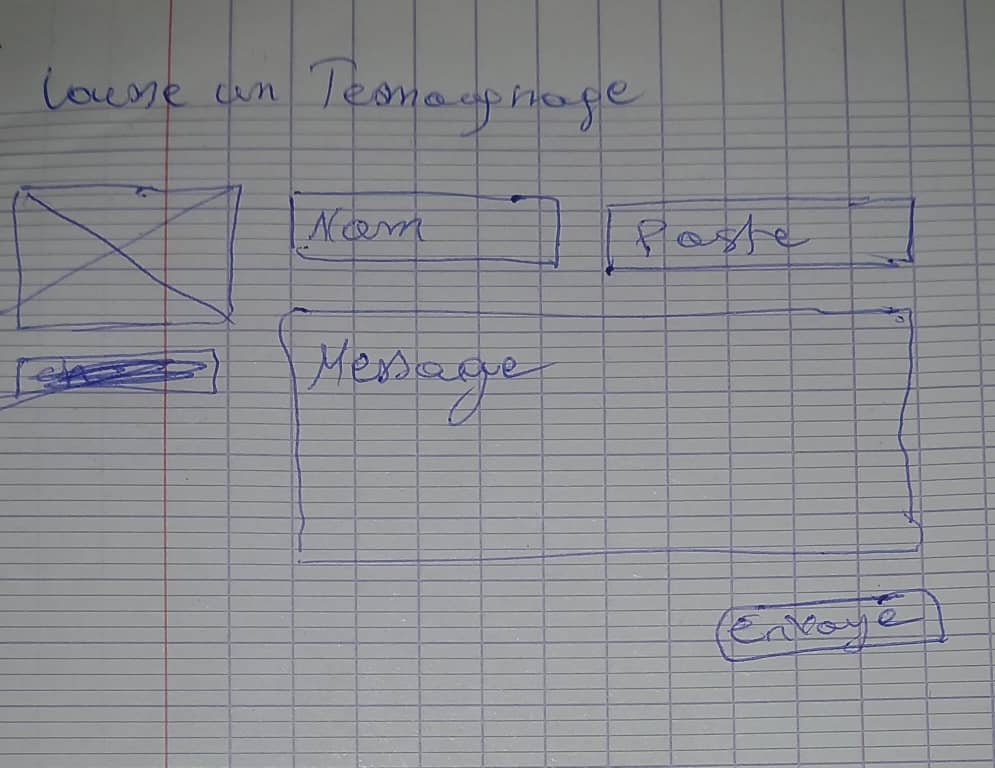 Laisse un Temoognage
Nom
Poste
Message
Envoyé